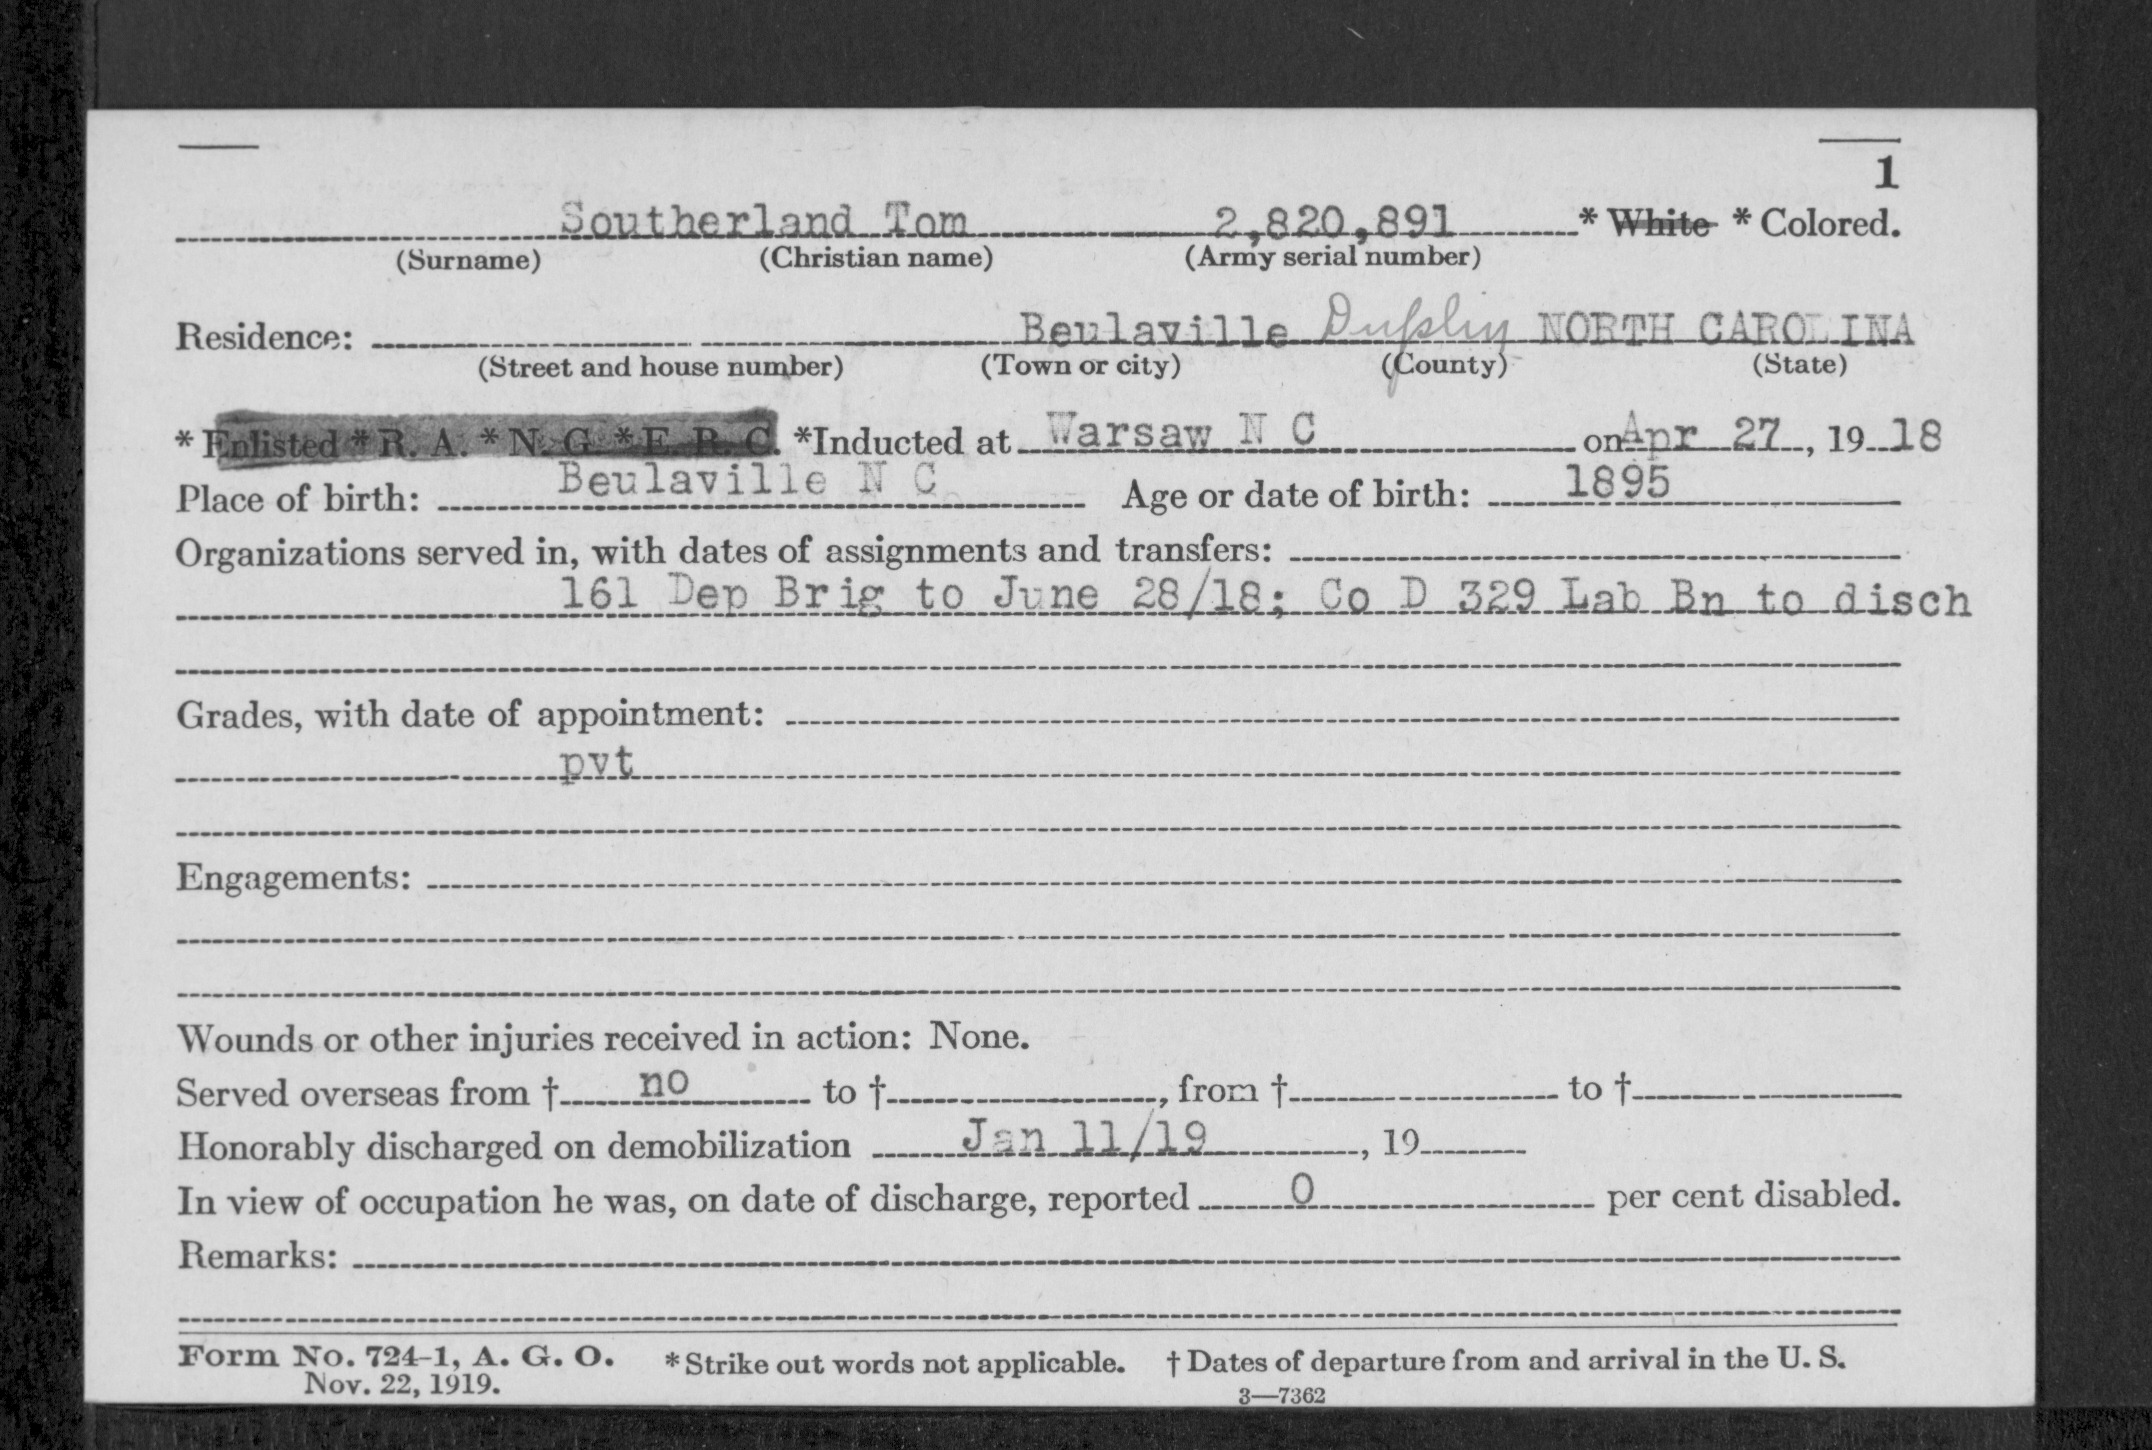 1
Southerland Tom 2,820,891 * White * Colored.
(Surname) (Christian name) (Army serial number)
Residence: Beulaville Duplin NORTH CAROLINA
(Street and house number) (Town or city) (County) (State)
* Enlisted * R. A. * N. G. * E. R. C. *Inducted at Warsaw N C on Apr 27, 19 18
Place of birth: Beulaville N C Age or date of birth: 1895
Organizations served in, with dates of assignments and transfers:
161 Dep Brig to June 28/18; Co D 329 Lab Bn to disch
Grades, with date of appointment:
pvt
Engagements:
Wounds or other injuries received in action: None.
Served overseas from † no to †, from † to †
Honorably discharged on demobilization Jan 11/19, 19
In view of occupation he was, on date of discharge, reported 0 per cent disabled.
Remarks:
Form No. 724-1, A. G. O. * Strike out words not applicable. † Dates of departure from and arrival in the U. S.
Nov. 22, 1919. 3—7362